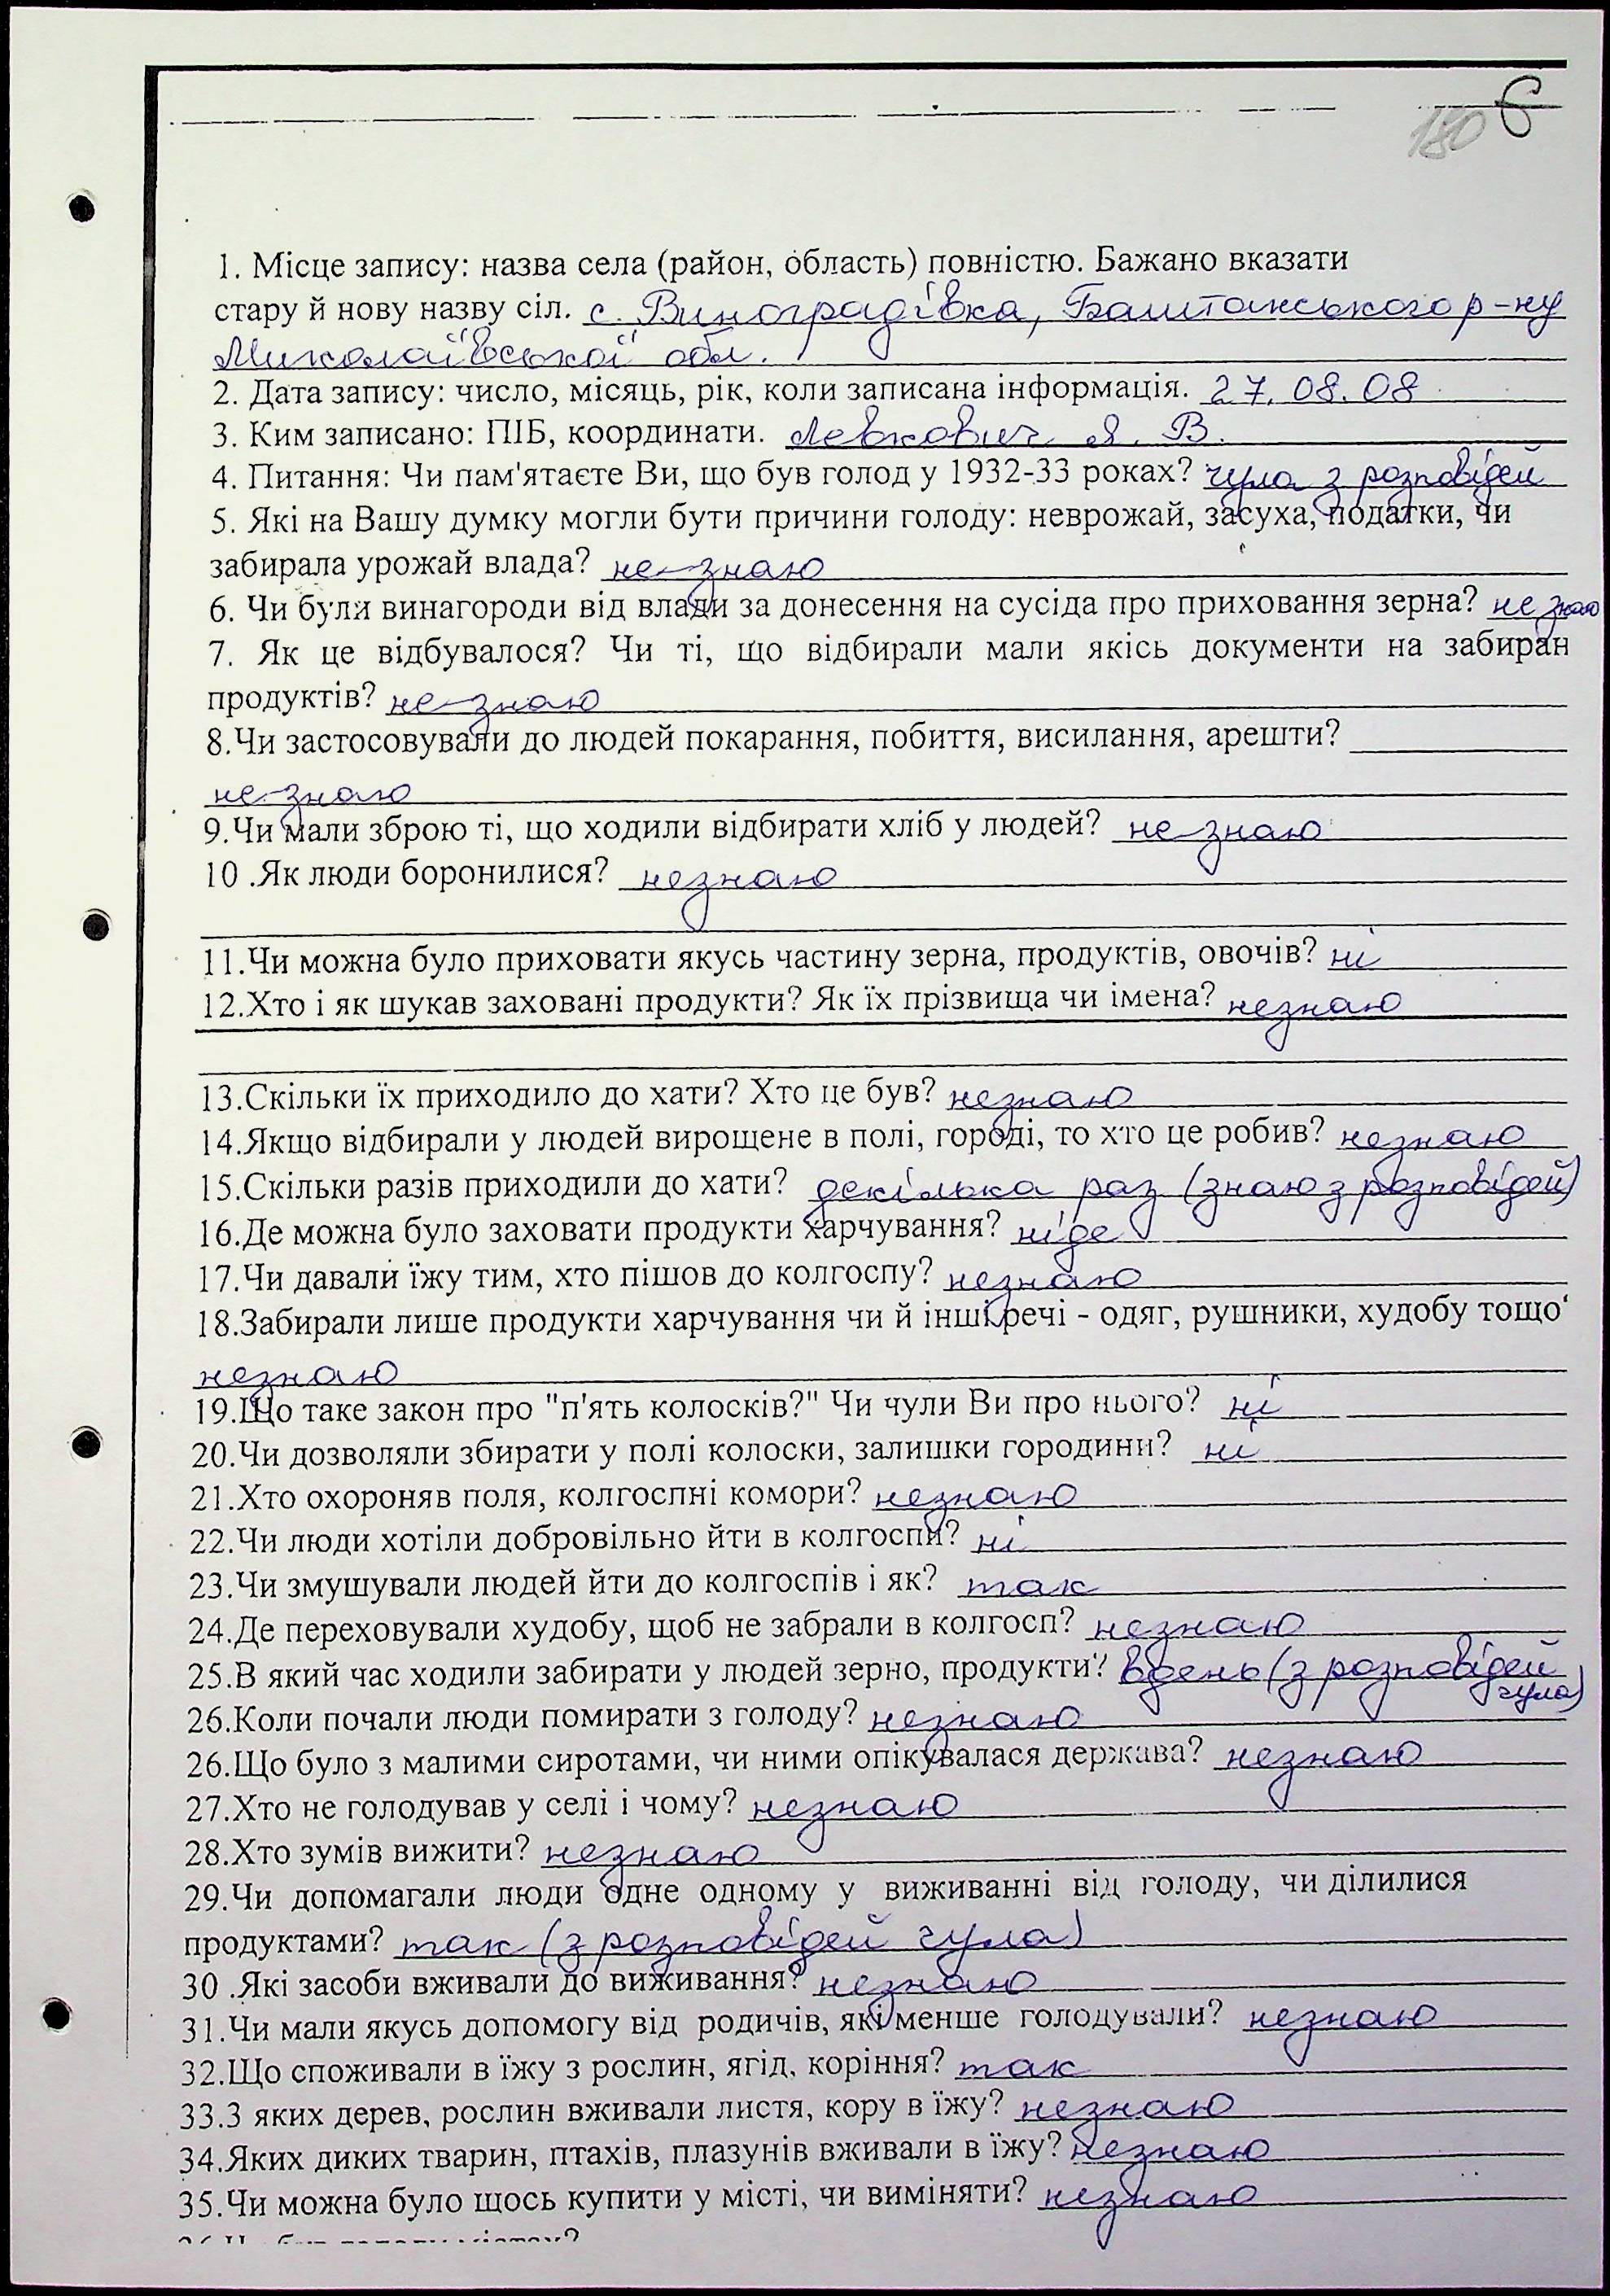 180 6
1. Місце запису: назва села (район, область) повністю. Бажано вказати
стару й нову назву сіл. с. Виноградівка, Баштанського р-ну
Миколаївської обл.
2. Дата запису: число, місяць, рік, коли записана інформація. 27.08.08
3. Ким записано: ПІБ, координати. Левкович Я. В.
4. Питання: Чи пам'ятаєте Ви, що був голод у 1932-33 роках? чула з розповідей
5. Які на Вашу думку могли бути причини голоду: неврожай, засуха, податки, чи
забирала урожай влада? не знаю
6. Чи були винагороди від влади за донесення на сусіда про приховання зерна? не знаю
7. Як це відбувалося? Чи ті, що відбирали мали якісь документи на забиран
продуктів? не знаю
8.Чи застосовували до людей покарання, побиття, висилання, арешти?
не знаю
9.Чи мали зброю ті, що ходили відбирати хліб у людей? не знаю
10 .Як люди боронилися? незнаю
11.Чи можна було приховати якусь частину зерна, продуктів, овочів? ні
12.Хто і як шукав заховані продукти? Як їх прізвища чи імена? незнаю
13.Скільки їх приходило до хати? Хто це був? незнаю
14.Якщо відбирали у людей вирощене в полі, городі, то хто це робив? незнаю
15.Скільки разів приходили до хати? декілька раз (знаю з розповідей)
16.Де можна було заховати продукти харчування? ніде
17.Чи давали їжу тим, хто пішов до колгоспу? незнаю
18.Забирали лише продукти харчування чи й інші речі - одяг, рушники, худобу тощо
незнаю
19.Що таке закон про "п'ять колосків?" Чи чули Ви про нього? ні
20.Чи дозволяли збирати у полі колоски, залишки городини? ні
21.Хто охороняв поля, колгоспні комори? незнаю
22.Чи люди хотіли добровільно йти в колгоспи? ні
23.Чи змушували людей йти до колгоспів і як? так
24.Де переховували худобу, щоб не забрали в колгосп? незнаю
25.В який час ходили забирати у людей зерно, продукти? вдень (з розповідей
чула)
26.Коли почали люди помирати з голоду? незнаю
26.Що було з малими сиротами, чи ними опікувалася держава? незнаю
27.Хто не голодував у селі і чому? незнаю
28.Хто зумів вижити? незнаю
29.Чи допомагали люди одне одному у виживанні від голоду, чи ділилися
продуктами? так (з розповідей чула)
30 .Які засоби вживали до виживання? незнаю
31.Чи мали якусь допомогу від родичів, які менше голодували? незнаю
32.Що споживали в їжу з рослин, ягід, коріння? так
33.З яких дерев, рослин вживали листя, кору в їжу? незнаю
34.Яких диких тварин, птахів, плазунів вживали в їжу? незнаю
35.Чи можна було щось купити у місті, чи виміняти? незнаю